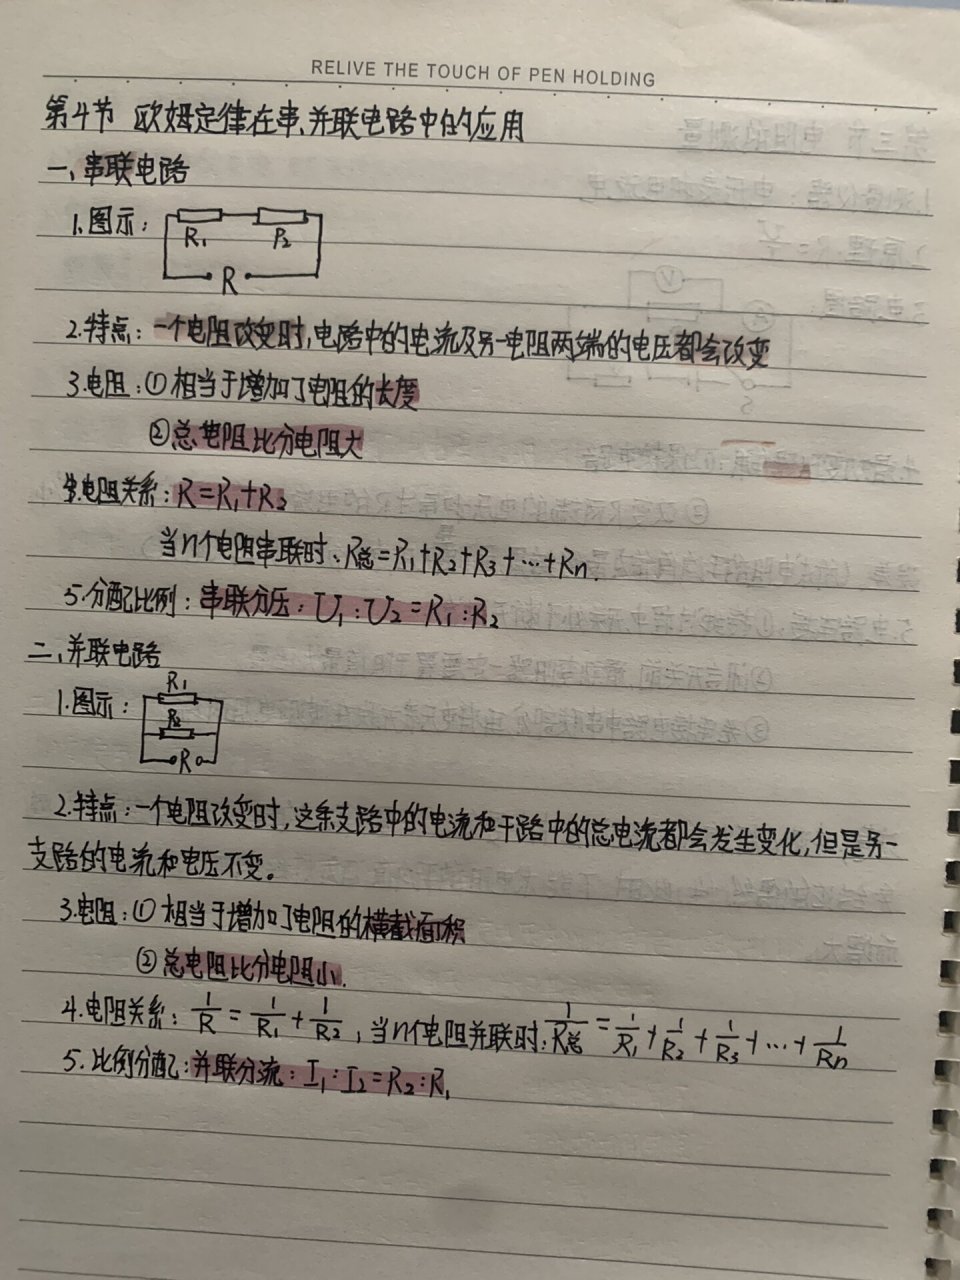 RELIVE THE TOUCH OF PEN HOLDING
第4节 欧姆定律在串、并联电路中的应用
一、串联电路
1.图示:
R₁ R₂
R
2.特点:一个电阻改变时,电路中的电流及另一电阻两端的电压都会改变
3.电阻:①相当于增加了电阻的长度
②总电阻比分电阻大
4.电阻关系:R=R₁+R₂
当n个电阻串联时、R总=R₁+R₂+R₃+…+Rn.
5.分配比例:串联分压:U₁:U₂=R₁:R₂
二、并联电路
R₁
1.图示:
R₂
R
2.特点:一个电阻改变时,这条支路中的电流和干路中的总电流都会发生变化,但是另一
支路的电流和电压不变。
3.电阻:①相当于增加了电阻的横截面积
②总电阻比分电阻小.
4.电阻关系:1/R=1/R₁+1/R₂,当n个电阻并联时:1/R总=1/R₁+1/R₂+1/R₃+…+1/Rn
5.比例分配:并联分流:I₁:I₂=R₂:R₁